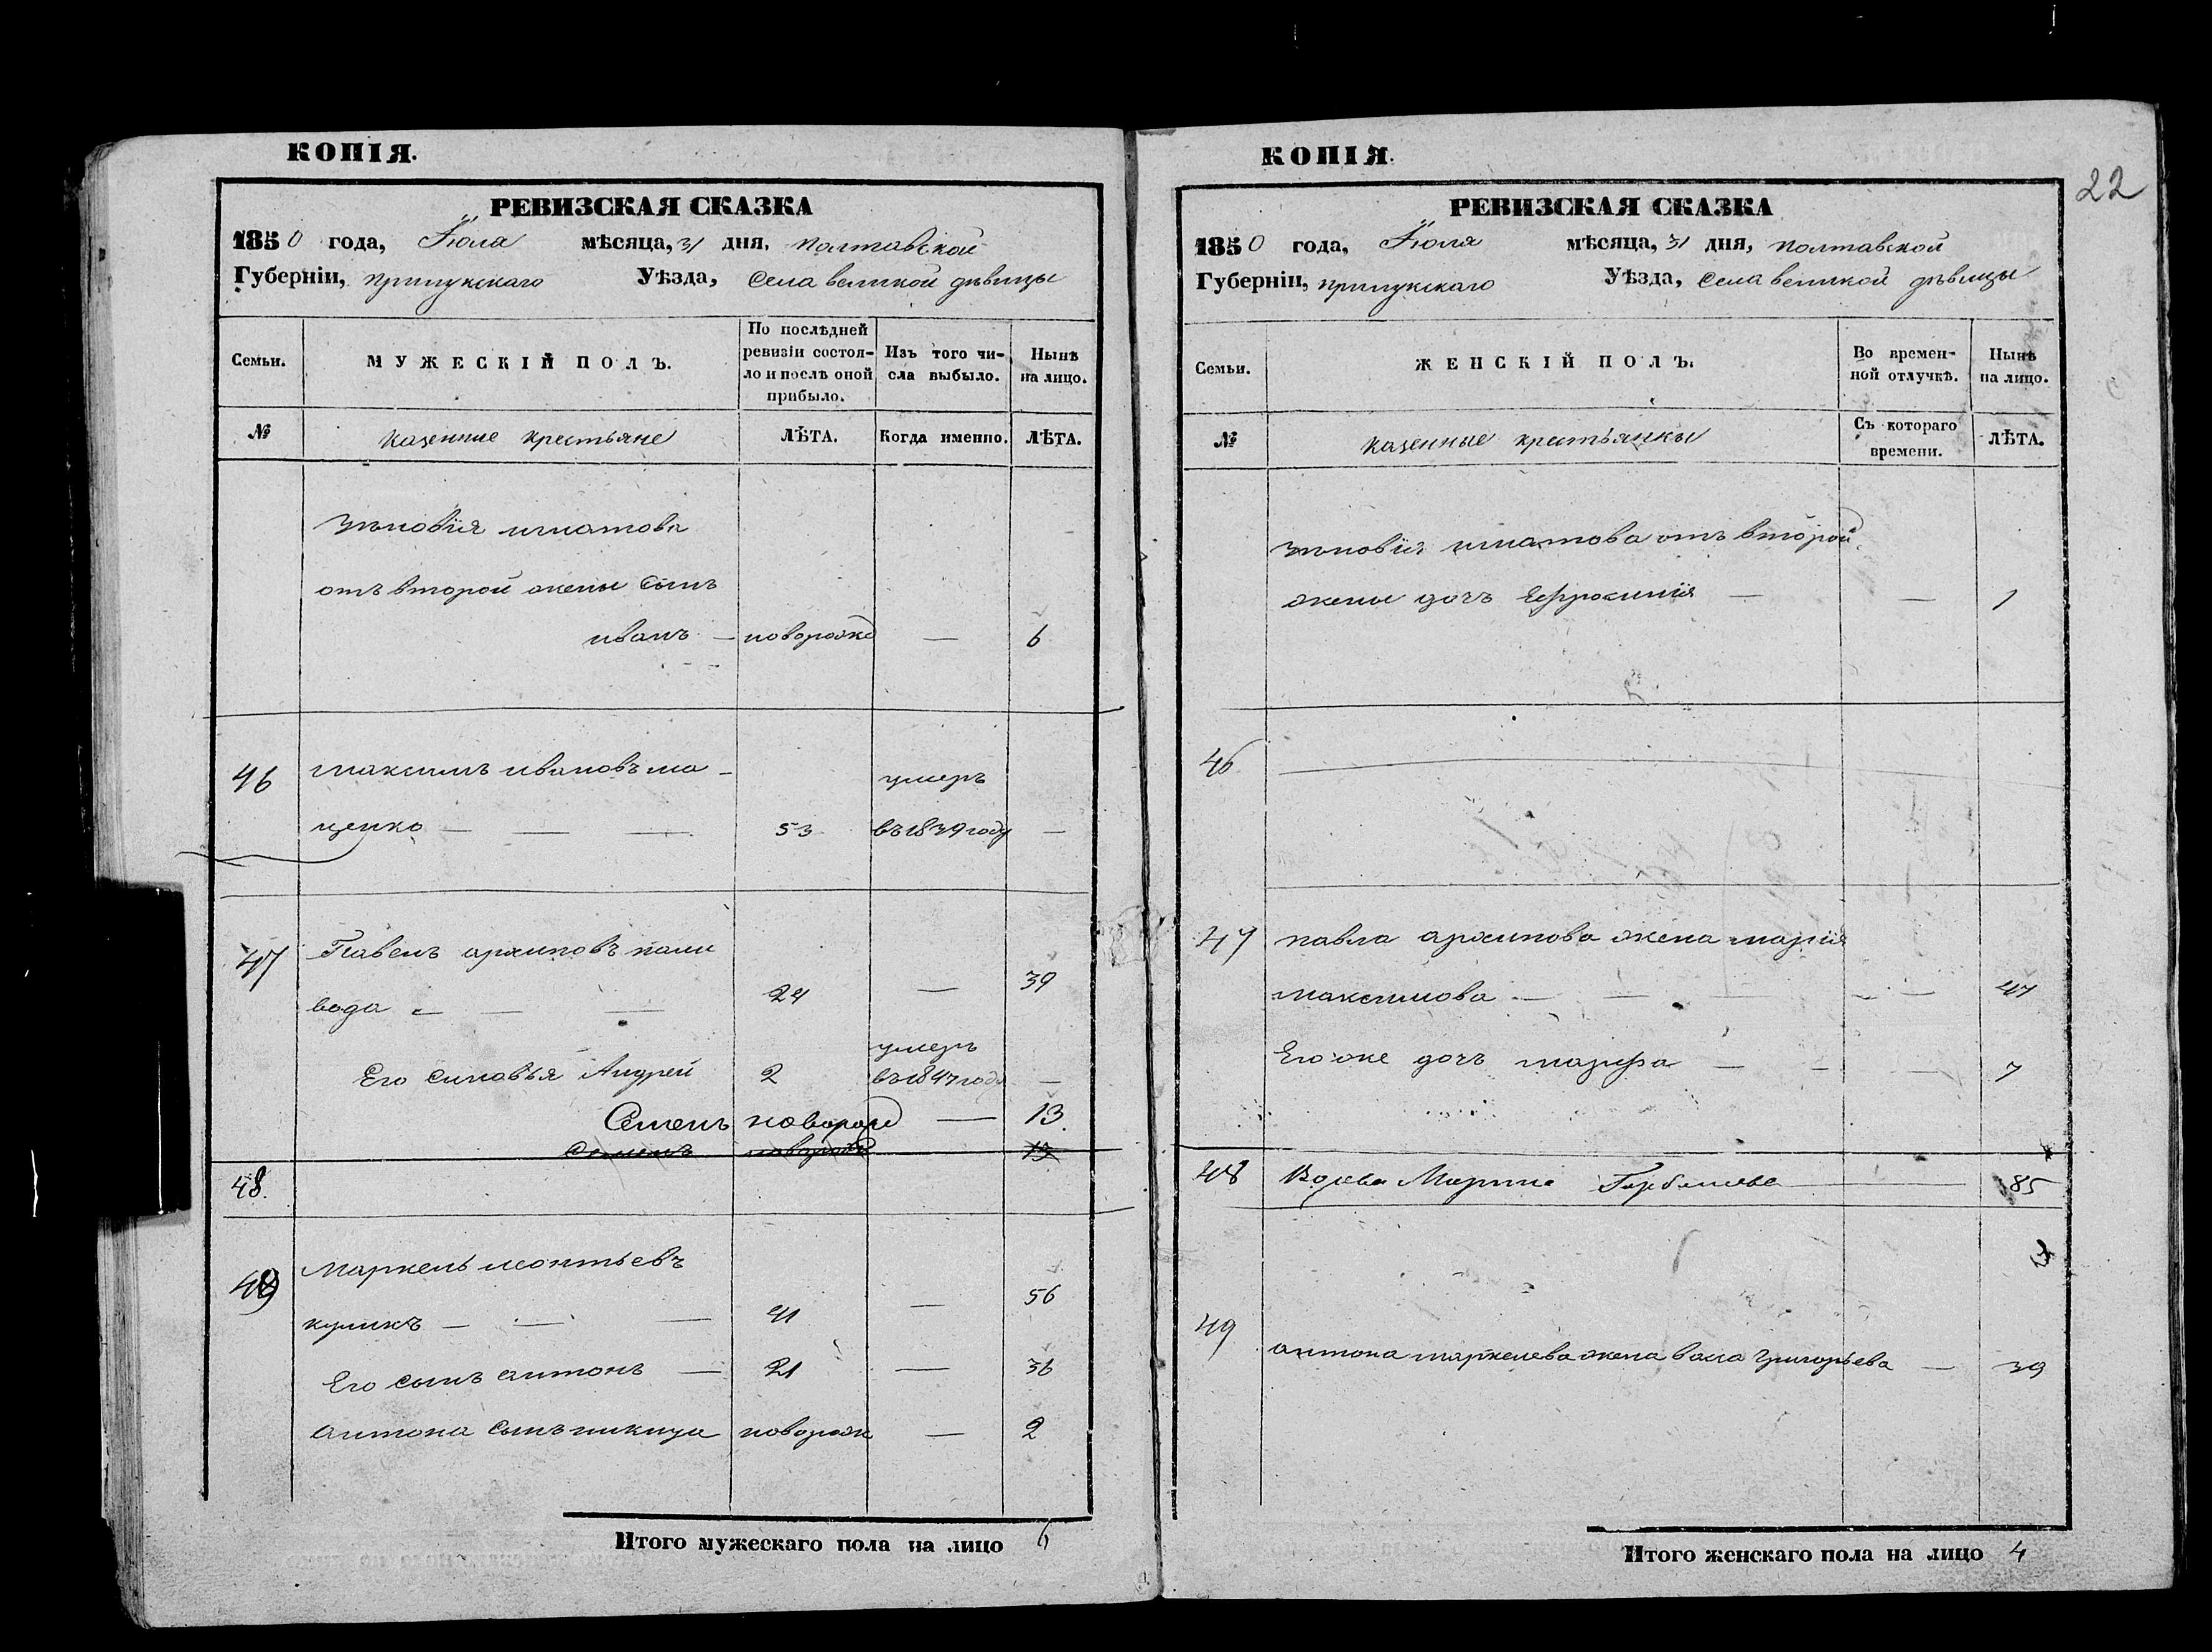 КОПІЯ.
РЕВИЗСКАЯ СКАЗКА
1850 года, Іюля мѣсяца, 31 дня, полтавской
Губерніи, прилукскаго Уѣзда, села великой дѣвицы
Семьи.
МУЖЕСКІЙ ПОЛЪ.
По послѣдней
ревизіи состоя-
ло и послѣ оной
прибыло.
Изъ того чи-
сла выбыло.
Нынѣ
на лицо.
№
казенные крестьяне
ЛѢТА.
Когда именно.
ЛѢТА.
Зѣновія игнатова
отъ второй жены сынъ
иванъ — новорожд — 6
46 максимъ ивановъ ма- умеръ
ценко — — — 53 въ 1839 году —
47 Павелъ архиповъ пали
вода — — — 24 — 39
Его сыновья Андрей 2 умеръ
въ 1847 году —
Семенъ новорож — 13
Семенъ новорожд 13
48.
49 Маркелъ леонтьевъ
куликъ — — — 41 — 56
Его сынъ антонъ — 21 — 36
антона сынъ никита новорож — 2
Итого мужескаго пола на лицо 6
КОПІЯ.
22
РЕВИЗСКАЯ СКАЗКА
1850 года, Іюля мѣсяца, 31 дня, полтавской
Губерніи, прилукскаго Уѣзда, села великой дѣвицы
Семьи.
ЖЕНСКІЙ ПОЛЪ.
Во времен-
ной отлучкѣ.
Нынѣ
на лицо.
№
казенные крестьянки
Съ котораго
времени.
ЛѢТА.
зѣновія игнатова отъ второй
жены дочь Ефросинія — — 1
46
47 павла архипова жена марія
максимова — — — — 47
Его же дочь марфа — — — 7
48 Вдова Марина 85
49 антона маркелева жена васса Григорьева — 39
Итого женскаго пола на лицо 4